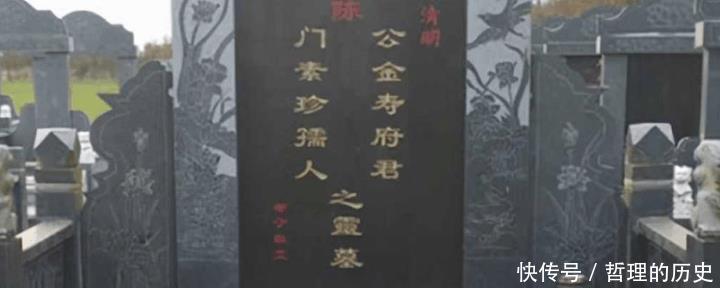 清明
陈
公金寿府君
门素珍孺人
之靈墓
快传号 / 哲理的历史